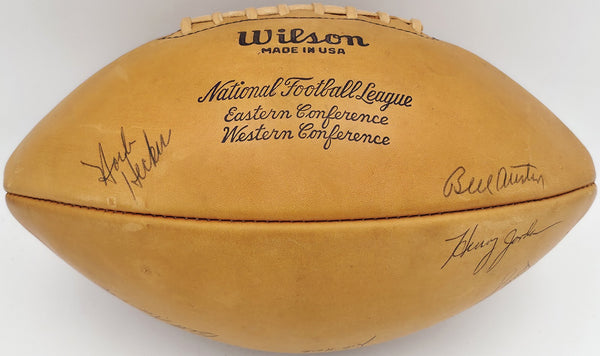 Wilson
MADE IN USA
National Football League
Eastern Conference
Western Conference
Herb
Hecker
Bill Austin
Henry Jordan